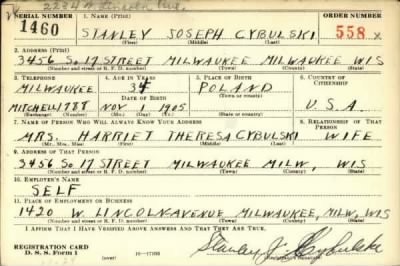 2234 W. Lincoln Ave.
SERIAL NUMBER 1. NAME (Print) ORDER NUMBER
1460 STANLEY JOSEPH CYBULSKI 558 x
(First) (Middle) (Last)
2. ADDRESS (Print)
3456 So. 17 STREET MILWAUKEE MILWAUKEE WIS
(Number and street or R. F. D. number) (Town) (County) (State)
3. TELEPHONE 4. AGE IN YEARS 5. PLACE OF BIRTH 6. COUNTRY OF CITIZENSHIP
MILWAUKEE 34 POLAND
DATE OF BIRTH (Town or county)
MITCHELL 1788 NOV 1 1905 U.S.A.
(Exchange) (Number) (Mo.) (Day) (Yr.) (State or country)
7. NAME OF PERSON WHO WILL ALWAYS KNOW YOUR ADDRESS 8. RELATIONSHIP OF THAT PERSON
MRS. HARRIET THERESA CYBULSKI WIFE
(Mr., Mrs., Miss) (First) (Middle) (Last)
9. ADDRESS OF THAT PERSON
3456 So. 17 STREET MILWAUKEE MILW, WIS
(Number and street or R. F. D. number) (Town) (County) (State)
10. EMPLOYER'S NAME
SELF
11. PLACE OF EMPLOYMENT OR BUSINESS
1420 W. LINCOLN AVENUE, MILWAUKEE, MILW, WIS
(Number and street or R. F. D. number) (Town) (County) (State)
I AFFIRM THAT I HAVE VERIFIED ABOVE ANSWERS AND THAT THEY ARE TRUE.
REGISTRATION CARD
D. S. S. Form 1 16-17105 Stanley J. Cybulski
(Registrant's signature)